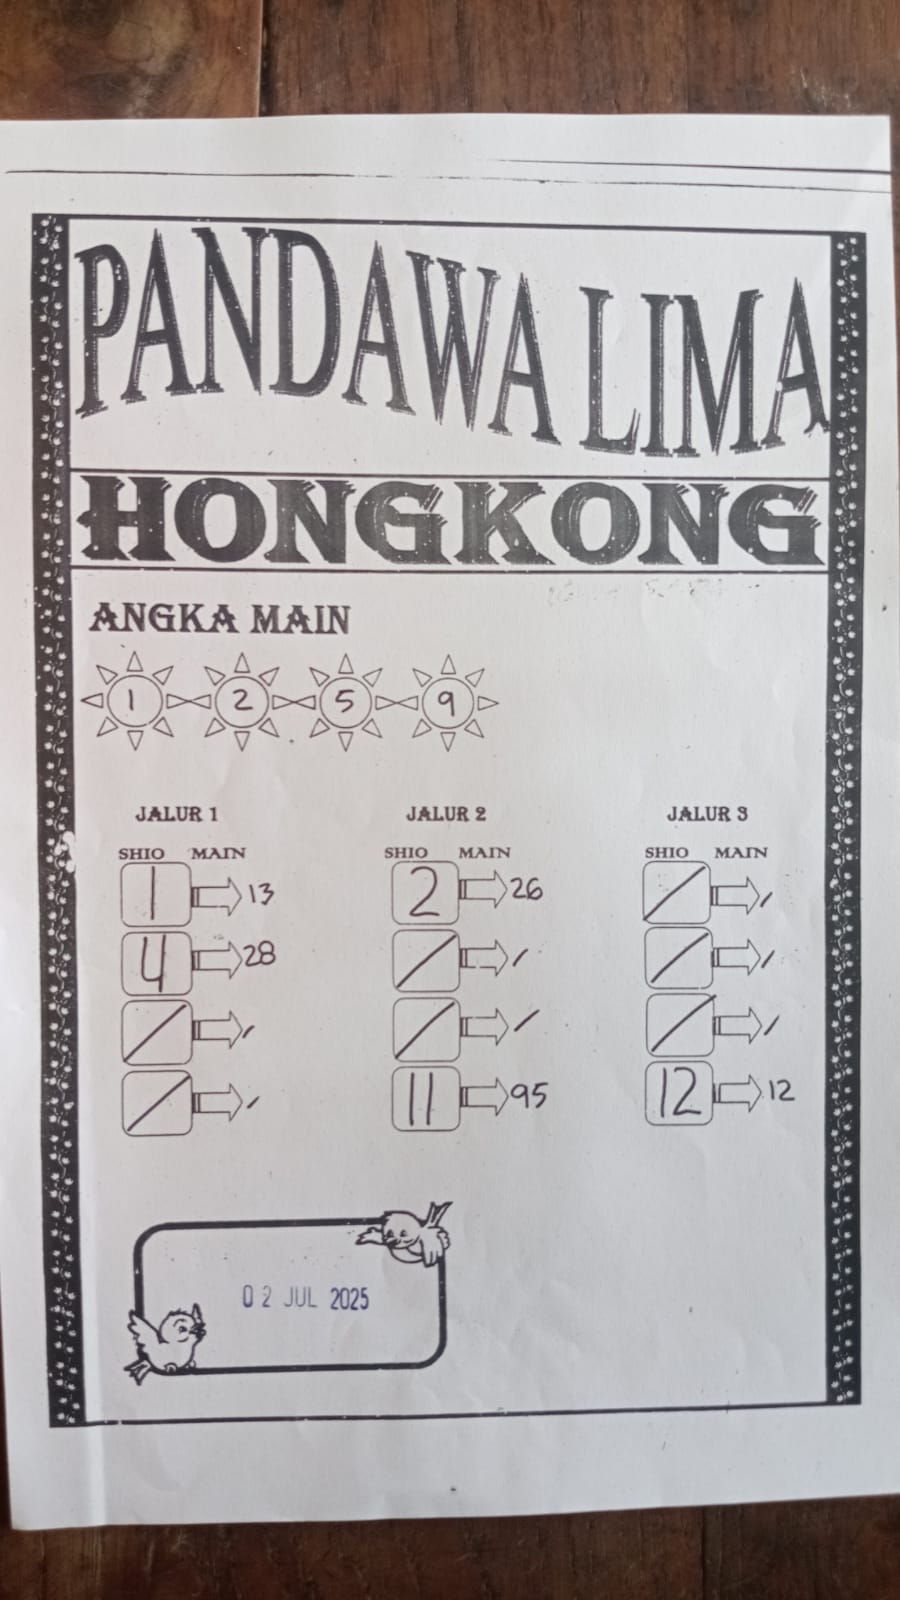 PANDAWA LIMA
HONGKONG
ANGKA MAIN
1 2 5 9
JALUR 1 JALUR 2 JALUR 3
SHIO MAIN SHIO MAIN SHIO MAIN
1 13 2 26 / /
4 28 / / / /
/ / / / / /
/ / 11 95 12 12
02 JUL 2025